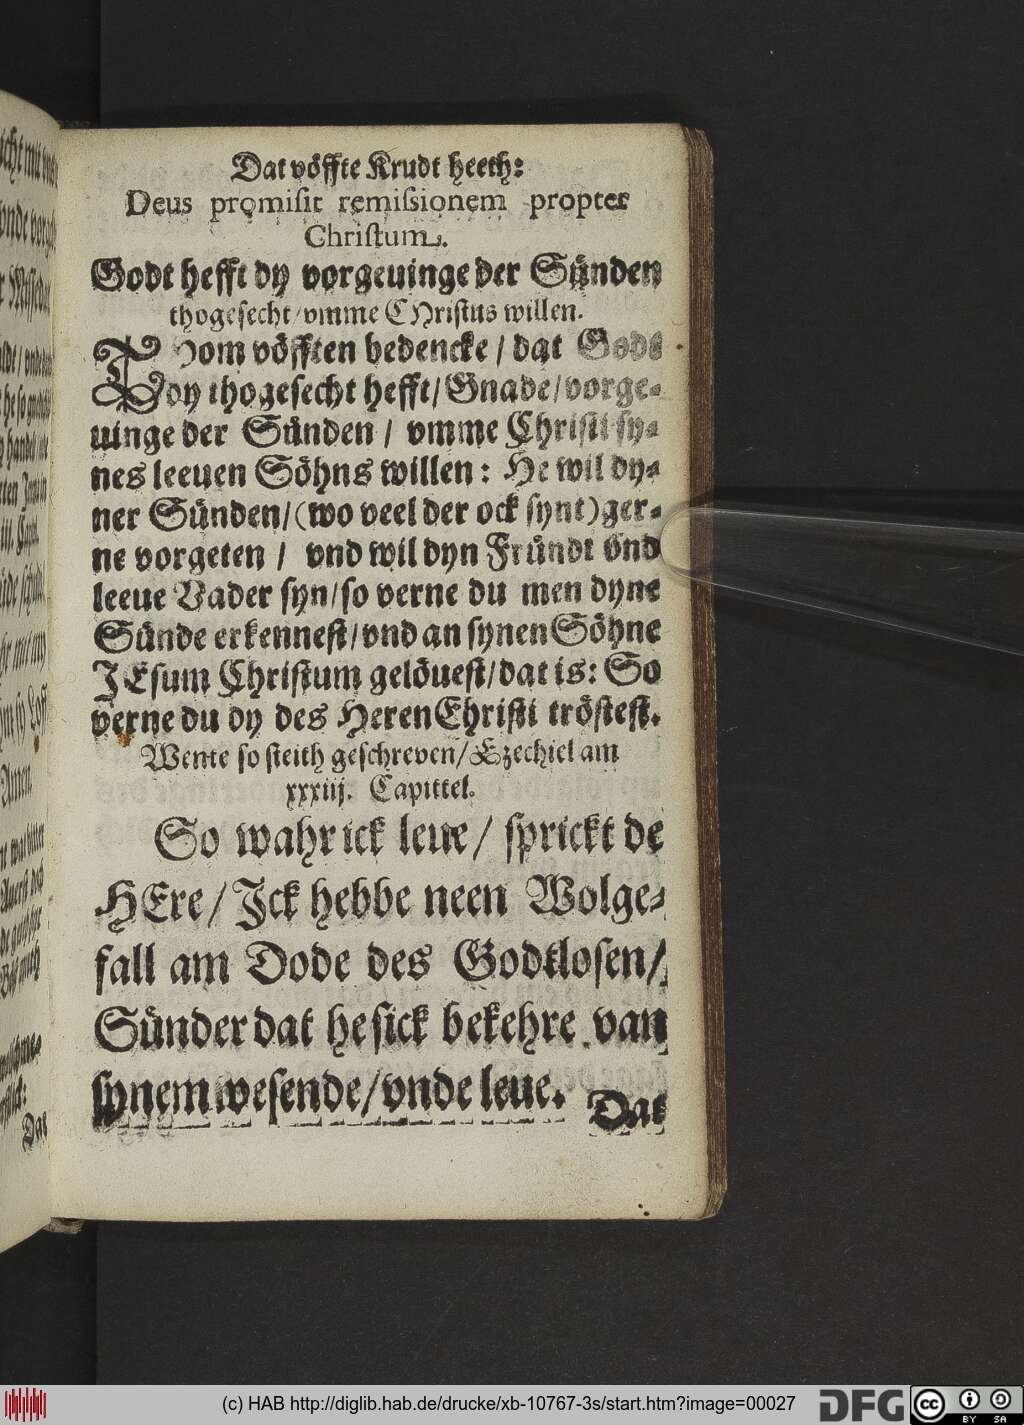 Dat vöffte Krudt heeth:
Deus promisit remissionem propter
Christum.
Godt hefft dy vorgeuinge der Sünden
thogesecht/vmme CHristus willen.
THom vöfften bedencke / dat Godt
dy thogesecht hefft/Gnade/vorge-
uinge der Sünden / vmme Christi sy-
nes leeuen Söhns willen: He wil dy-
ner Sünden/(wo veel der ock synt)ger-
ne vorgeten / vnd wil dyn Fründt vnd
leeue Vader syn/so verne du men dyne
Sünde erkennest/vnd an synen Söhne
JEsum Christum gelöuest/dat is: So
verne du dy des Heren Christi tröstest.
Wente so steith geschreven/Ezechiel am
xxxiij. Capittel.
So wahr ick leue/ sprickt de
HEre/Jck hebbe neen Wolge-
fall am Dode des Godtlosen/
Sünder dat he sick bekehre van
synem wesende/vnde leue.
Dat
Amen.
Dat
(c) HAB http://diglib.hab.de/drucke/xb-10767-3s/start.htm?image=00027
DFG
cc BY SA